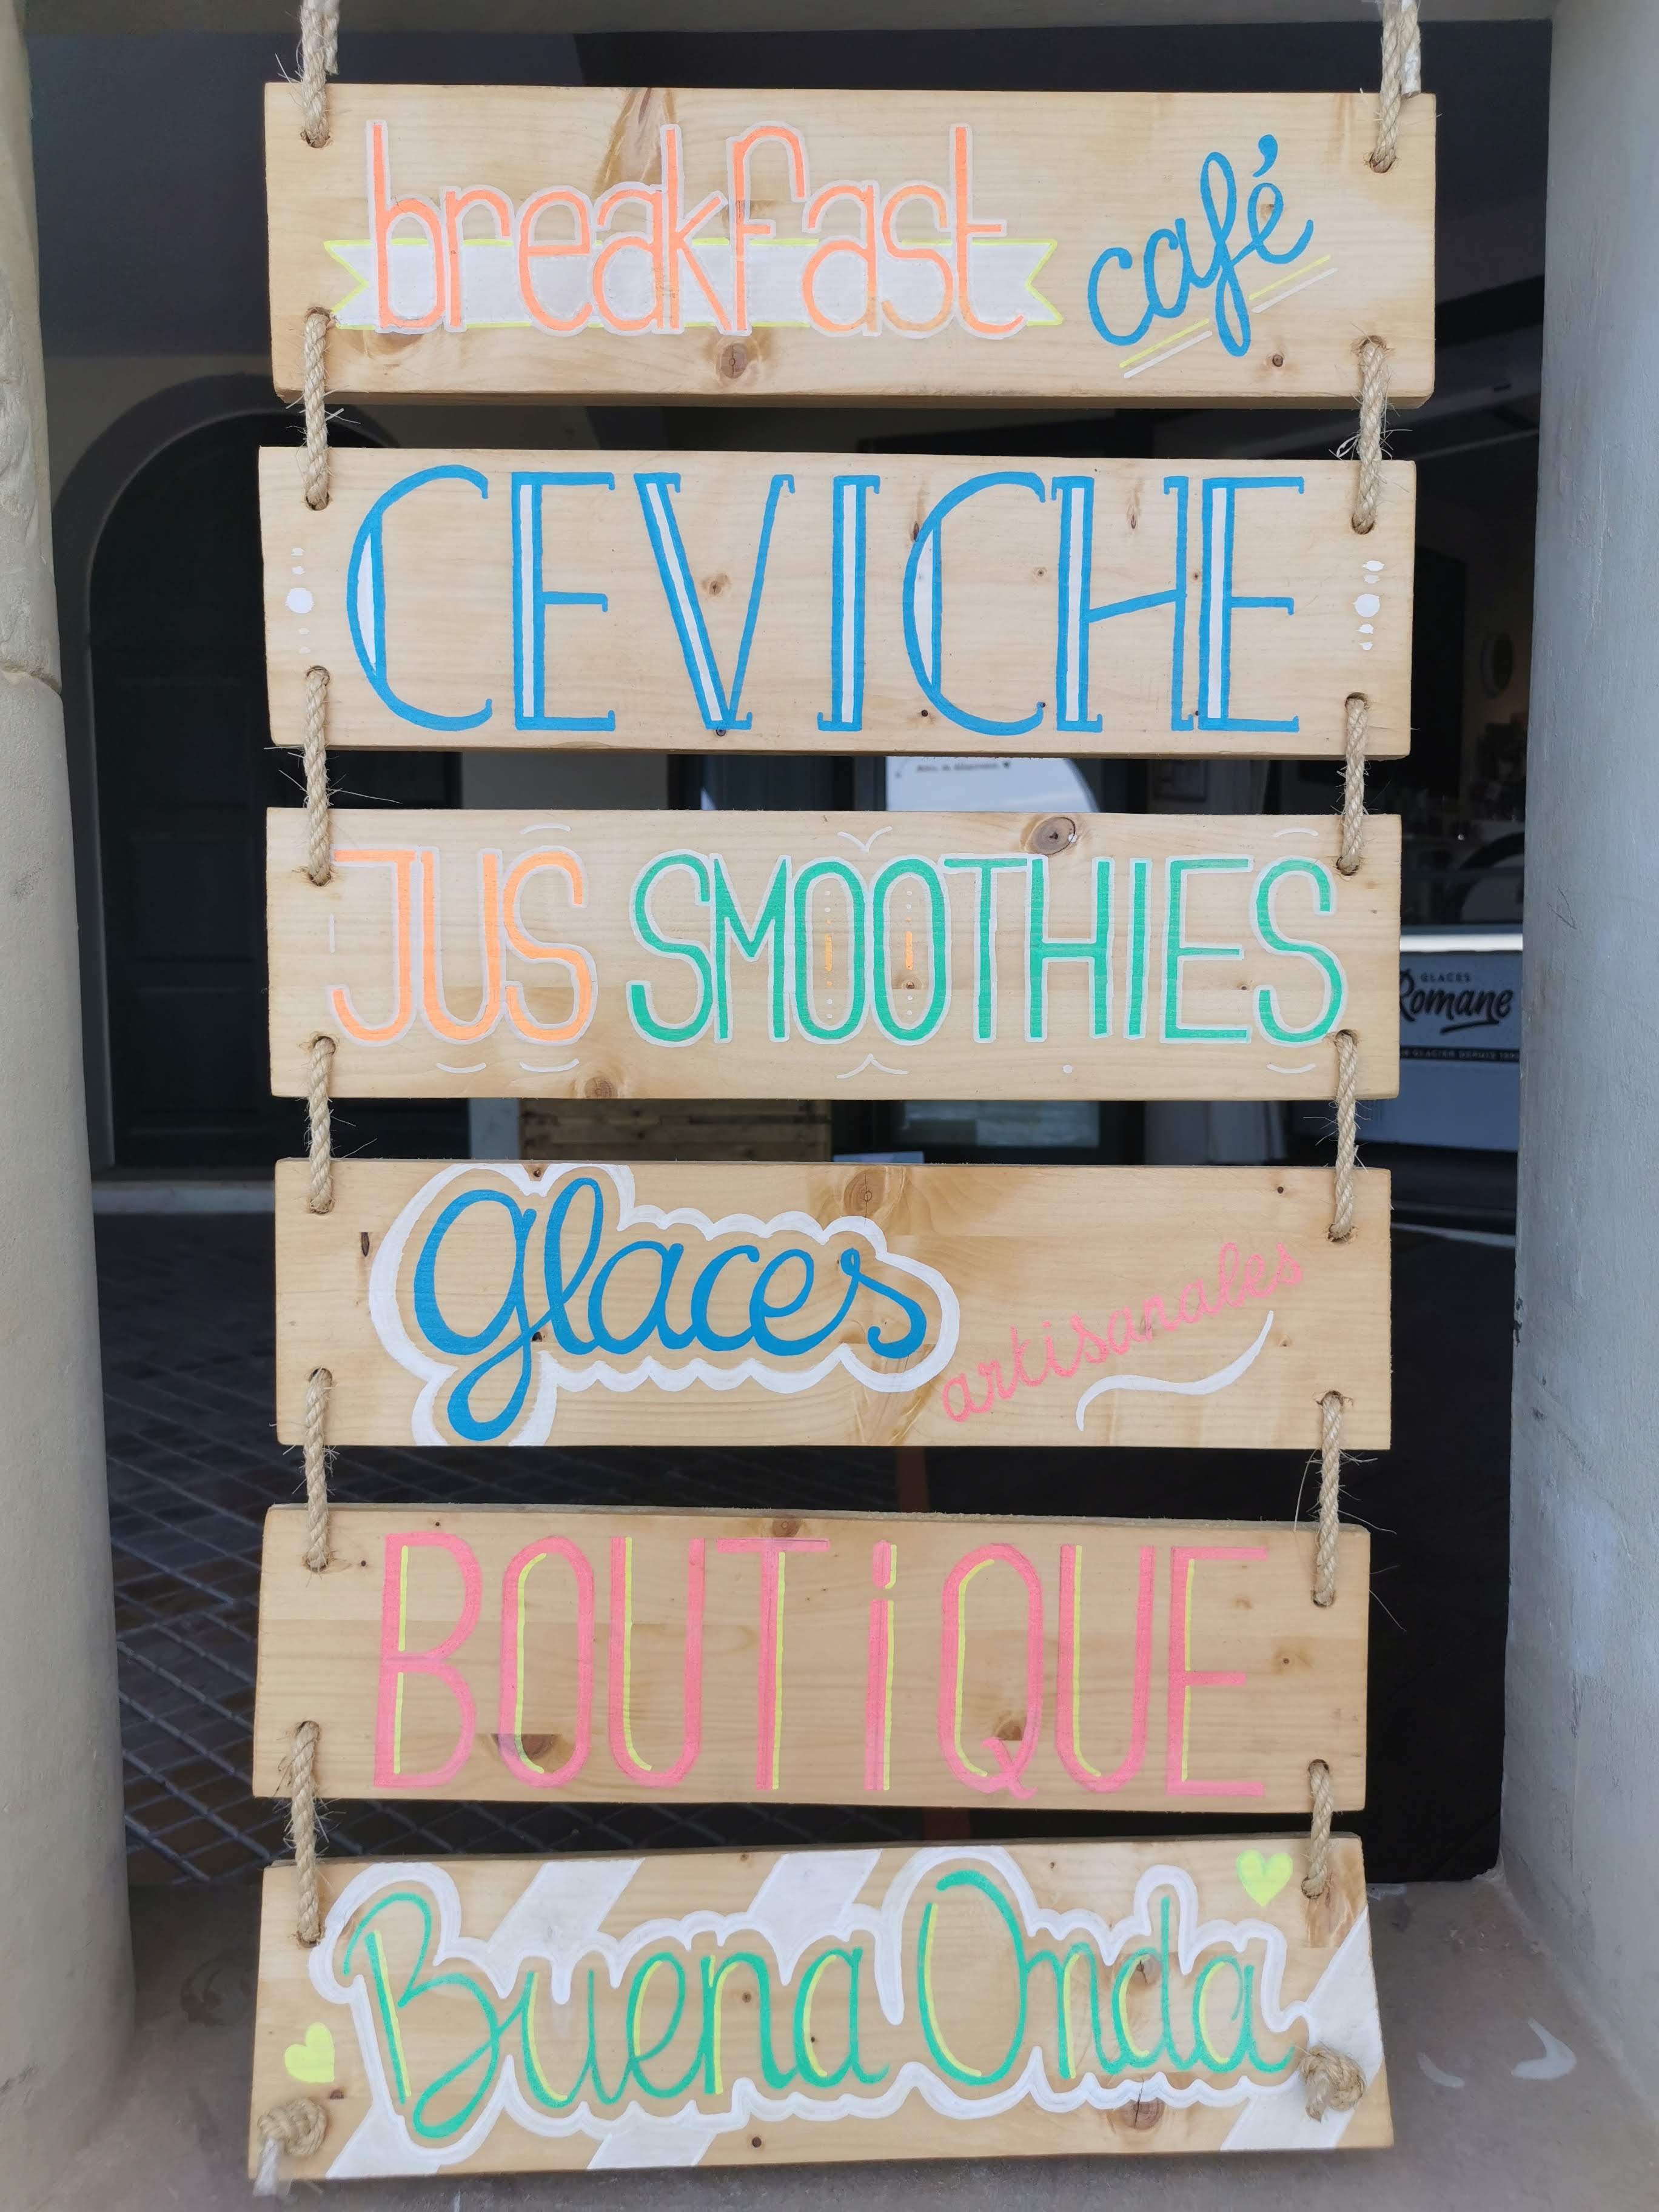 breakfast café
CEVICHE
JUS SMOOTHIES
Glaces artisanales
BOUTiQUE
Buena Onda
GLACES
Romane